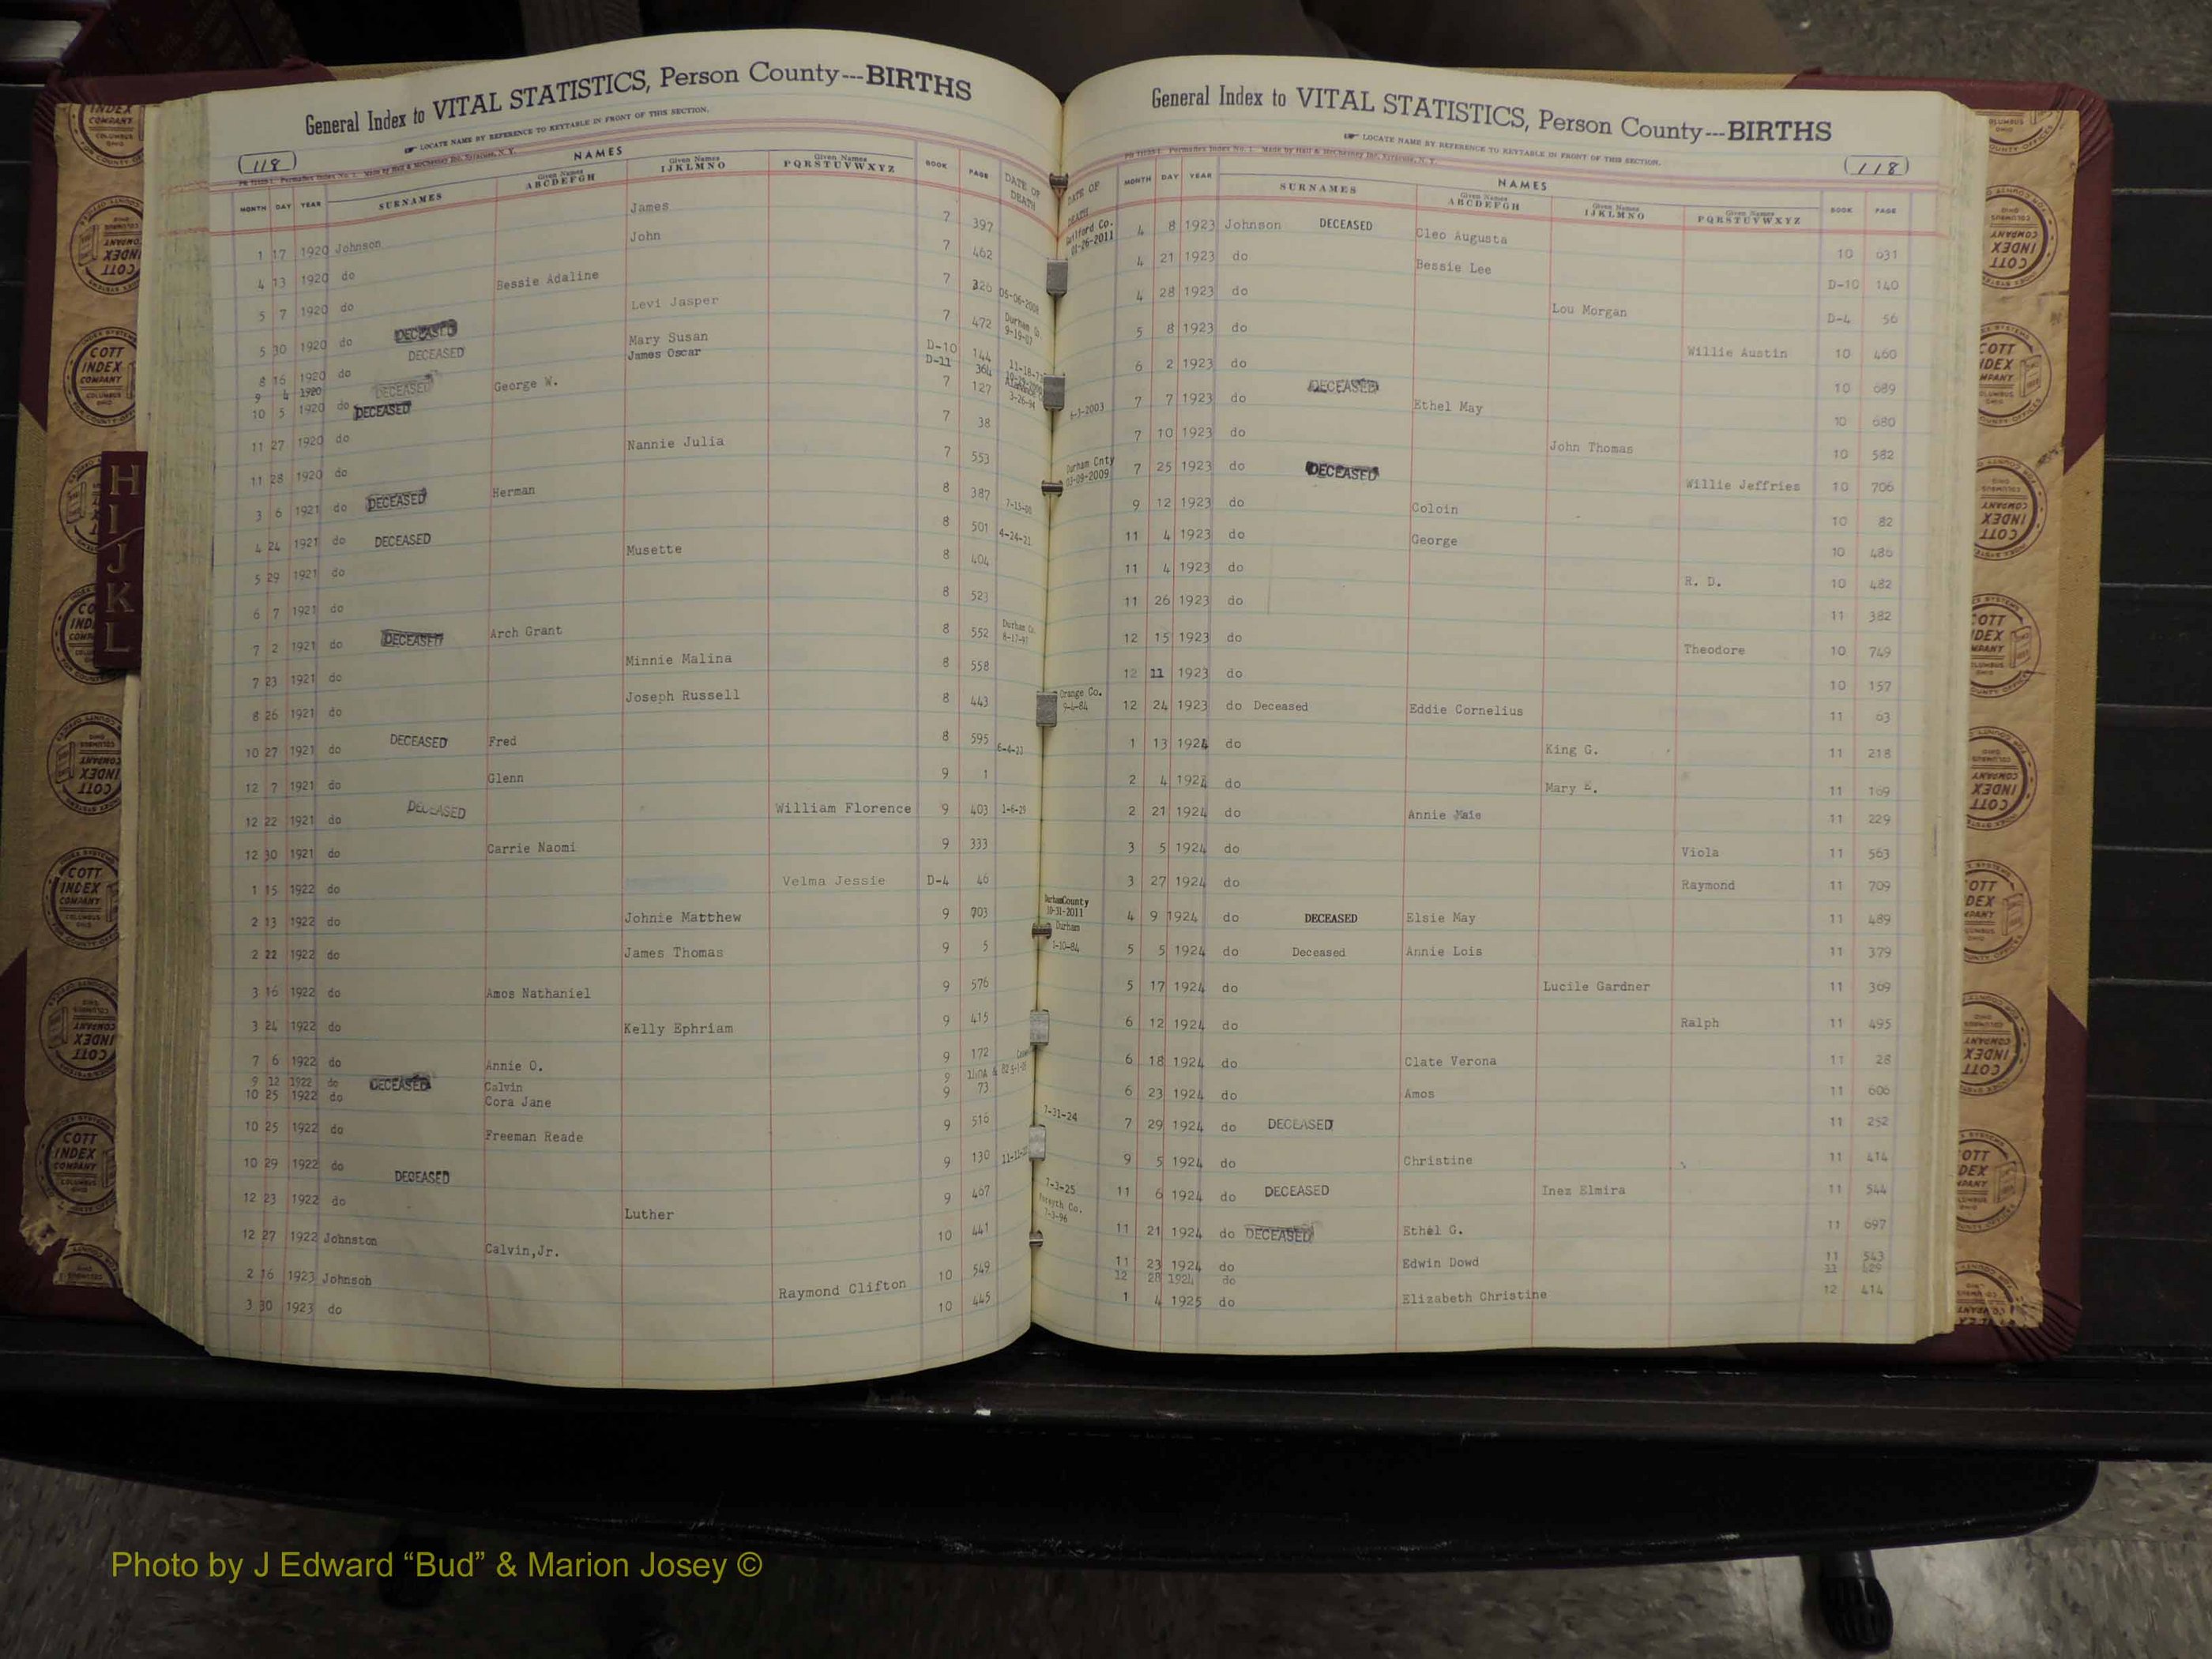 General Index to VITAL STATISTICS, Person County---BIRTHS
LOCATE NAME BY REFERENCE TO KEYTABLE IN FRONT OF THIS SECTION.
118
NAMES
MONTH DAY YEAR SURNAMES Given Names ABCDEFGH Given Names IJKLMNO Given Names PQRSTUVWXYZ BOOK PAGE DATE OF DEATH
1 17 1920 Johnson James 7 397
4 13 1920 do John 7 462
5 7 1920 do Bessie Adaline 7 326
5 30 1920 do DECEASED Levi Jasper 7 472 Durham Co. 9-19-87
8 16 1920 do DECEASED Mary Susan D-10 144
9 4 1920 DECEASED James Oscar D-11 364
10 5 1920 do DECEASED George W. 7 127 3-26-94
11 27 1920 do 7 38
11 28 1920 do Nannie Julia 7 553
3 6 1921 do DECEASED Herman 8 387
4 24 1921 do DECEASED 8 501 4-24-21
5 29 1921 do Musette 8 404
6 7 1921 do 8 523
7 2 1921 do DECEASED Arch Grant 8 552 Durham Co.
7 23 1921 do Minnie Malina 8 558
8 26 1921 do Joseph Russell 8 443
10 27 1921 do DECEASED Fred 8 595
12 7 1921 do Glenn 9 1
12 22 1921 do DECEASED William Florence 9 403 1-6-25
12 30 1921 do Carrie Naomi 9 333
1 15 1922 do Velma Jessie D-4 46
2 13 1922 do Johnie Matthew 9 703
2 22 1922 do James Thomas 9 5
3 16 1922 do Amos Nathaniel 9 576
3 24 1922 do Kelly Ephriam 9 415
7 6 1922 do Annie O. 9 172
9 12 1922 do DECEASED Calvin 9
10 25 1922 do Cora Jane 9 73
10 25 1922 do Freeman Reade 9 516
10 29 1922 do DECEASED 9 130
12 23 1922 do Luther 9 467
12 27 1922 Johnston Calvin,Jr. 10 441
2 16 1923 Johnson Raymond Clifton 10 549
3 30 1923 do 10 445
H
I
J
K
L
General Index to VITAL STATISTICS, Person County---BIRTHS
LOCATE NAME BY REFERENCE TO KEYTABLE IN FRONT OF THIS SECTION.
118
NAMES
DATE OF DEATH MONTH DAY YEAR SURNAMES Given Names ABCDEFGH Given Names IJKLMNO Given Names PQRSTUVWXYZ BOOK PAGE
Guilford Co. 01-26-2011 4 8 1923 Johnson DECEASED Cleo Augusta 10 631
4 21 1923 do Bessie Lee D-10 140
4 28 1923 do Lou Morgan D-4 56
5 8 1923 do Willie Austin 10 460
6 2 1923 do 10 689
6-3-2003 7 7 1923 do DECEASED Ethel May 10 680
7 10 1923 do John Thomas 10 582
Durham Cnty 03-09-2009 7 25 1923 do DECEASED Willie Jeffries 10 706
9 12 1923 do Coloin 10 82
11 4 1923 do George 10 486
11 4 1923 do R. D. 10 482
11 26 1923 do 11 382
12 15 1923 do Theodore 10 749
12 11 1923 do 10 157
Orange Co. 9-4-84 12 24 1923 do Deceased Eddie Cornelius 11 63
1 13 1924 do King G. 11 218
2 4 1924 do Mary E. 11 169
2 21 1924 do Annie Maie 11 229
3 5 1924 do Viola 11 563
3 27 1924 do Raymond 11 709
Durham County 10-31-2011 4 9 1924 do DECEASED Elsie May 11 489
Durham 1-10-84 5 5 1924 do Deceased Annie Lois 11 379
5 17 1924 do Lucile Gardner 11 369
6 12 1924 do Ralph 11 495
6 18 1924 do Clate Verona 11 28
6 23 1924 do Amos 11 606
7-31-24 7 29 1924 do DECEASED 11 252
9 5 1924 do Christine 11 414
7-3-25 11 6 1924 do DECEASED Inez Elmira 11 544
Forsyth Co. 11 21 1924 do DECEASED Ethel G. 11 697
11 23 1924 do Edwin Dowd 11 543
12 28 1924 do 11
1 4 1925 do Elizabeth Christine 12 414
COTT INDEX COMPANY COLUMBUS OHIO
Photo by J Edward “Bud” & Marion Josey ©